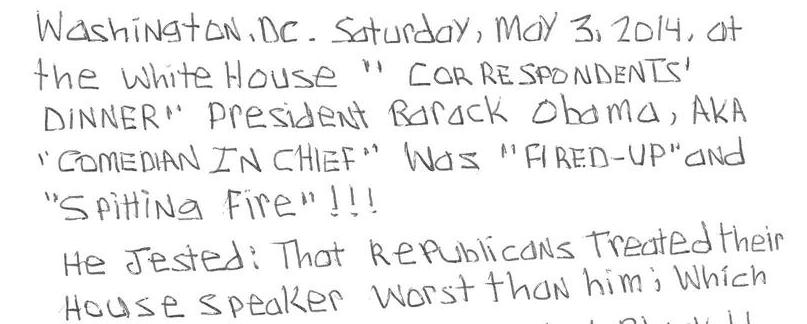 Washington, DC. Saturday, May 3, 2014, at
the White House " CORRESPONDENTS'
DINNER" President Barack Obama, AKA
"COMEDIAN IN CHIEF" Was "FIRED-UP" and
"Spitting Fire" !!!
He Jested: That Republicans Treated their
House speaker Worst than him; Which